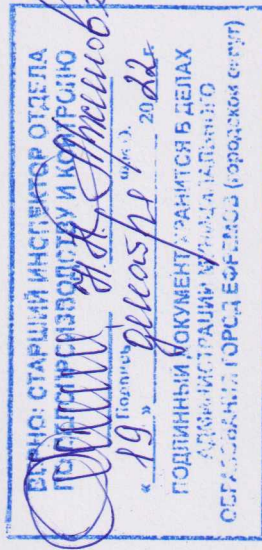 ВЕРНО: СТАРШИЙ ИНСПЕКТОР ОТДЕЛА
ПО ДЕЛОПРОИЗВОДСТВУ И КОНТРОЛЮ
Н.Н.
Подпись (Ф.И.О.)
« 19 » декабря 2022 г.
ПОДЛИННЫЙ ДОКУМЕНТ ХРАНИТСЯ В ДЕЛАХ
АДМИНИСТРАЦИИ МУНИЦИПАЛЬНОГО
ОБРАЗОВАНИЯ ГОРОД ЕФРЕМОВ (городской округ)